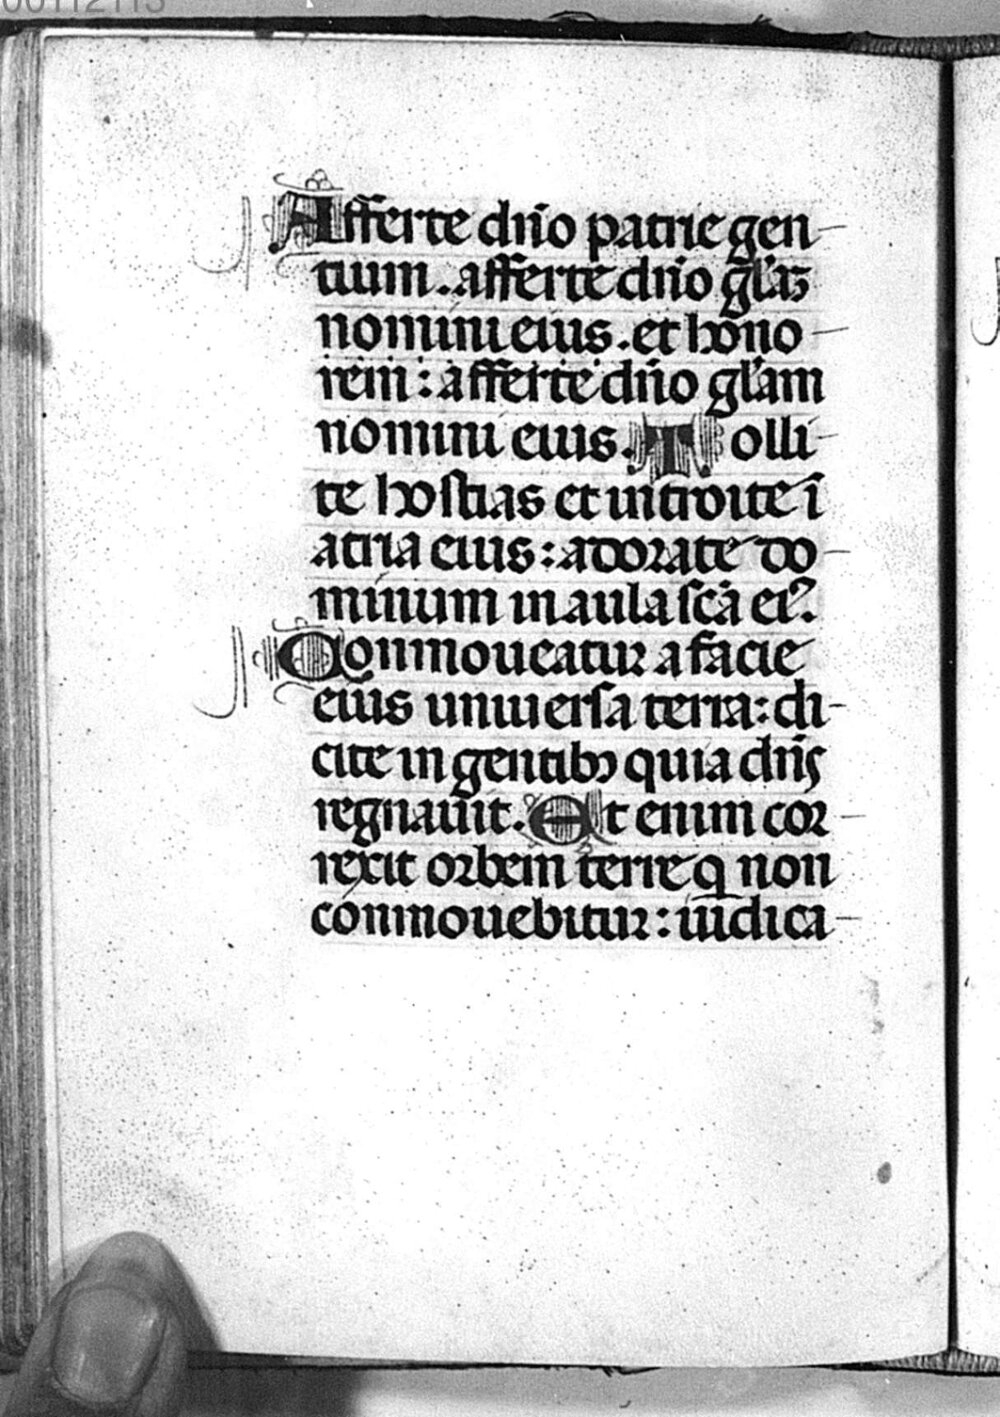 00112113
Afferte dn̄o patrie gen
tium. afferte dn̄o gl̄aꝫ
nomini eius. et hono
rem: afferte dn̄o gl̄am
nomini eius. Tolli
te hostias et introite ī
atria eius: adorate do
minum in aula scā eiꝰ.
Conmoueatur a facie
eius uniuersa terra: di
cite in gentibꝫ quia dn̄s
regnauit. Et enim cor
rexit orbem terre q̄ non
conmouebitur: iudica